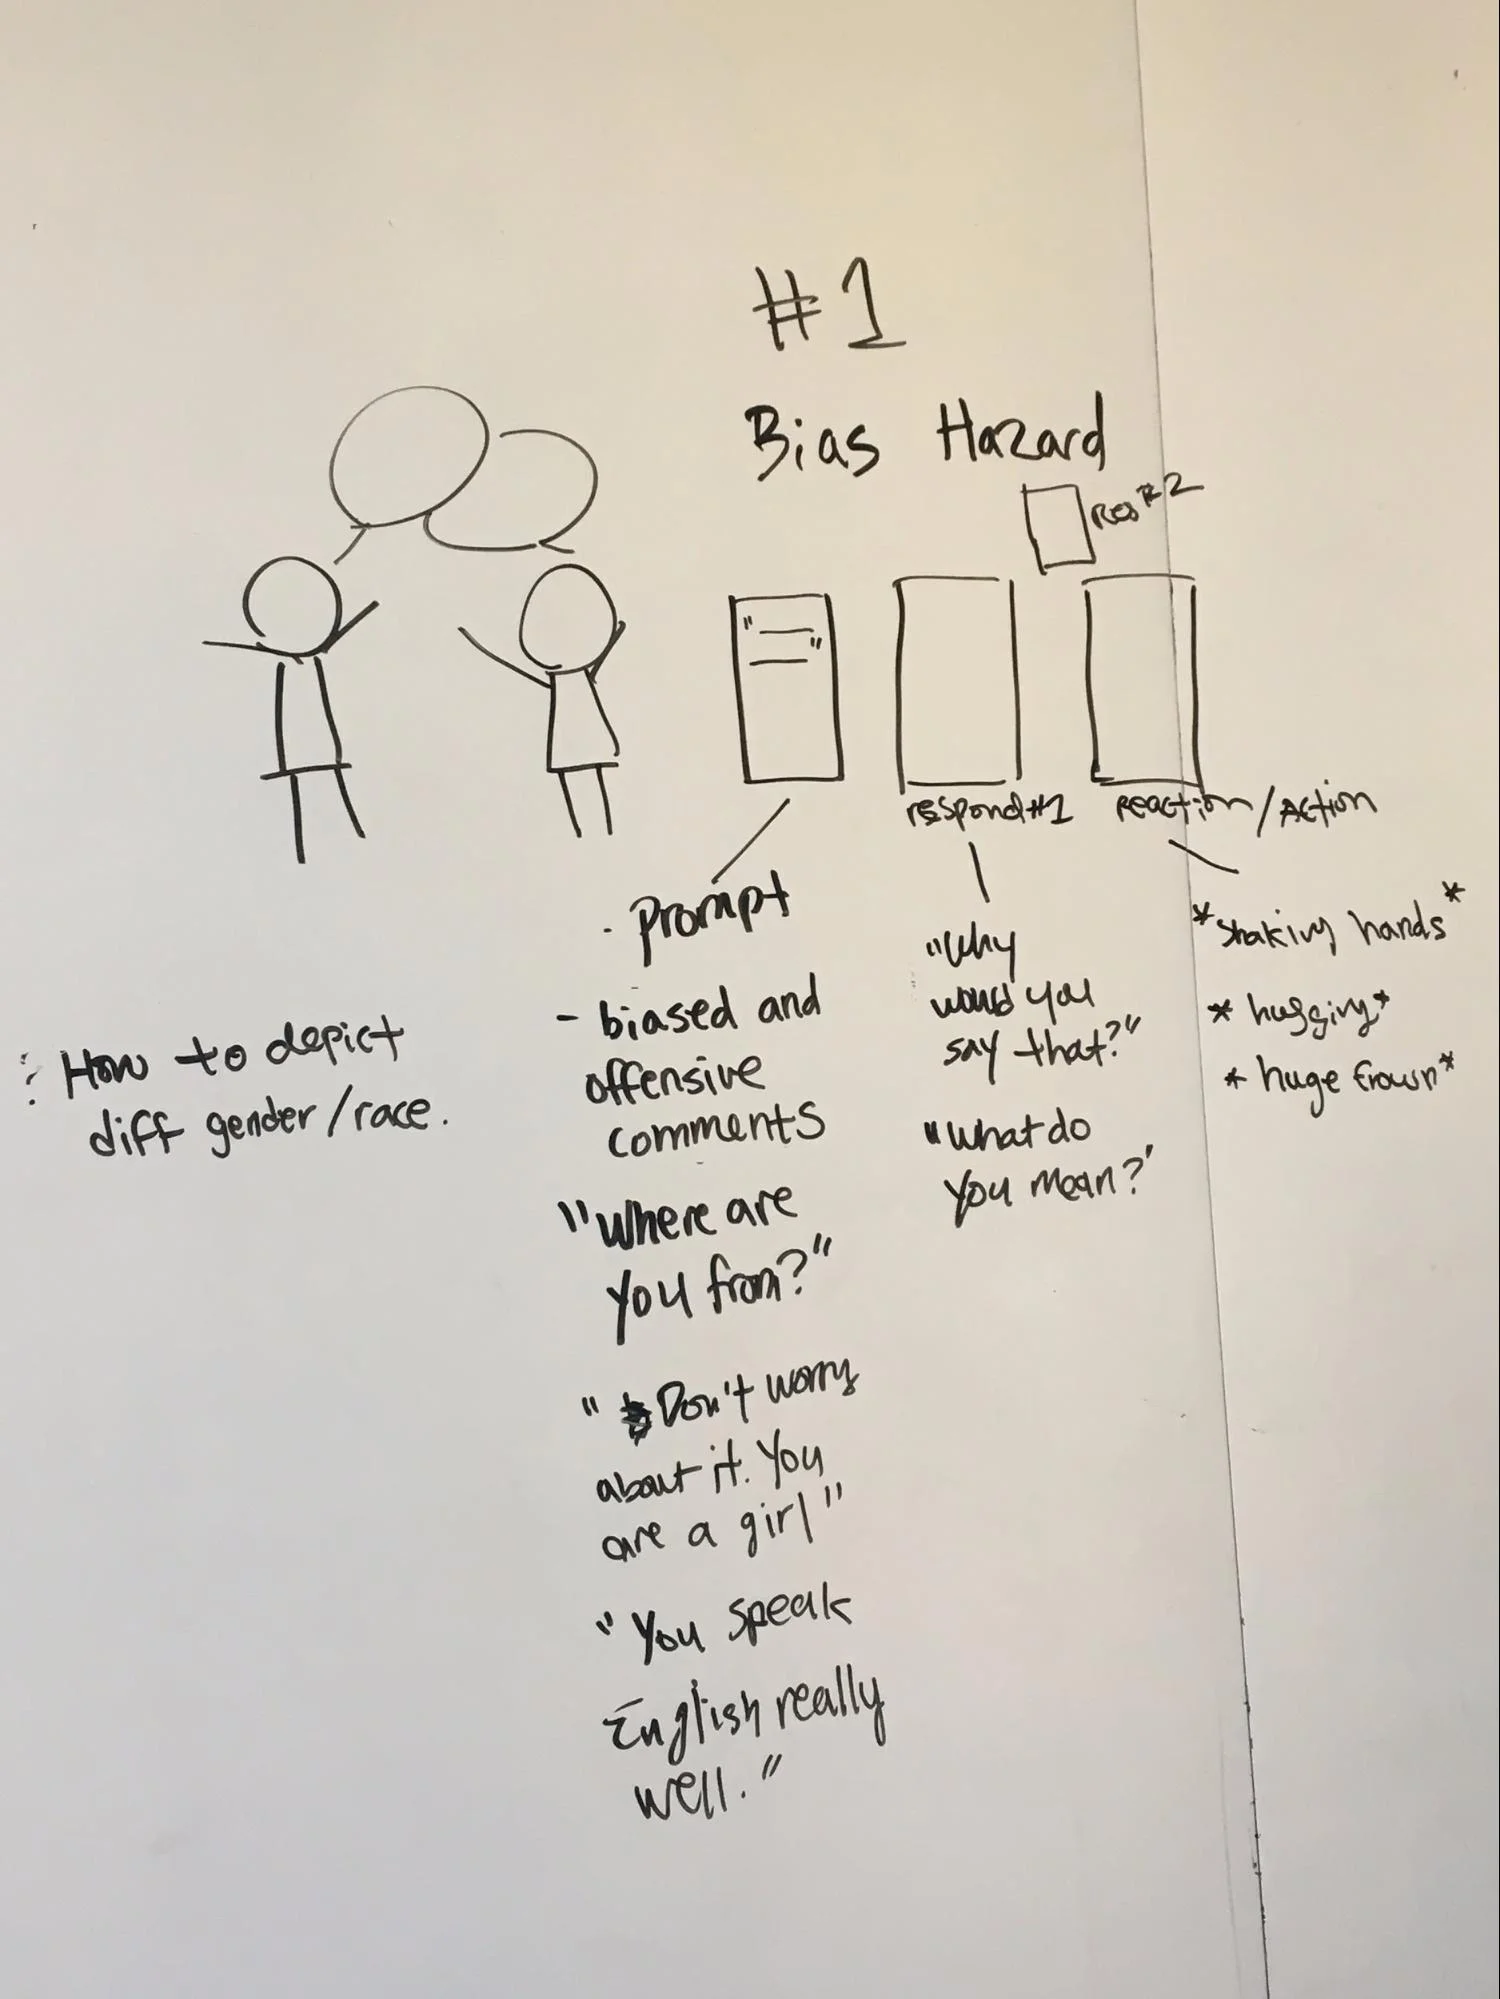 #1
Bias Hazard
Res#2
" "
respond#1
Reaction/Action
- Prompt
- biased and
offensive
comments
"Where are
you from?"
"Don't worry
about it. You
are a girl"
"You speak
English really
well."
"Why
would you
say that?"
"What do
you mean?"
*shaking hands*
*hugging*
*huge frown*
? How to depict
diff gender/race.